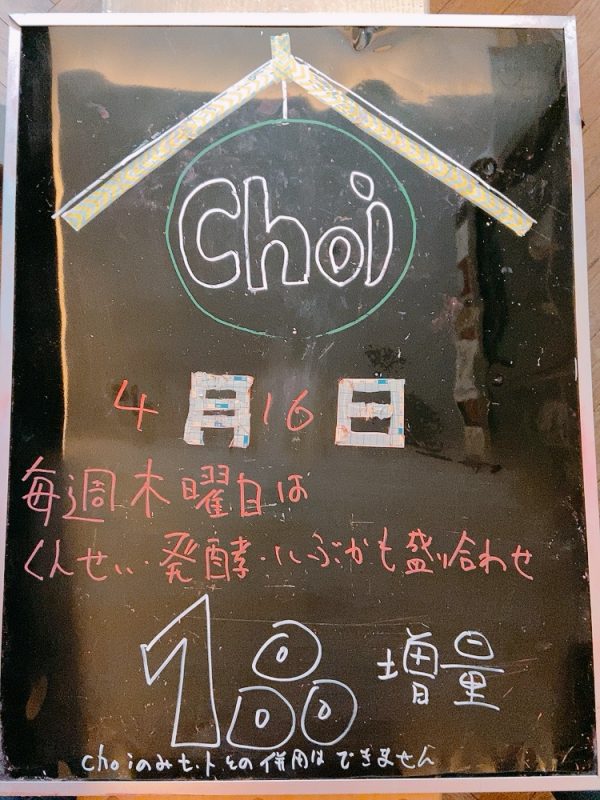 choi
4月16日
毎週木曜日は
くんせい・発酵・いぶかも盛り合わせ
1品増量
choiのみセットとの併用はできません